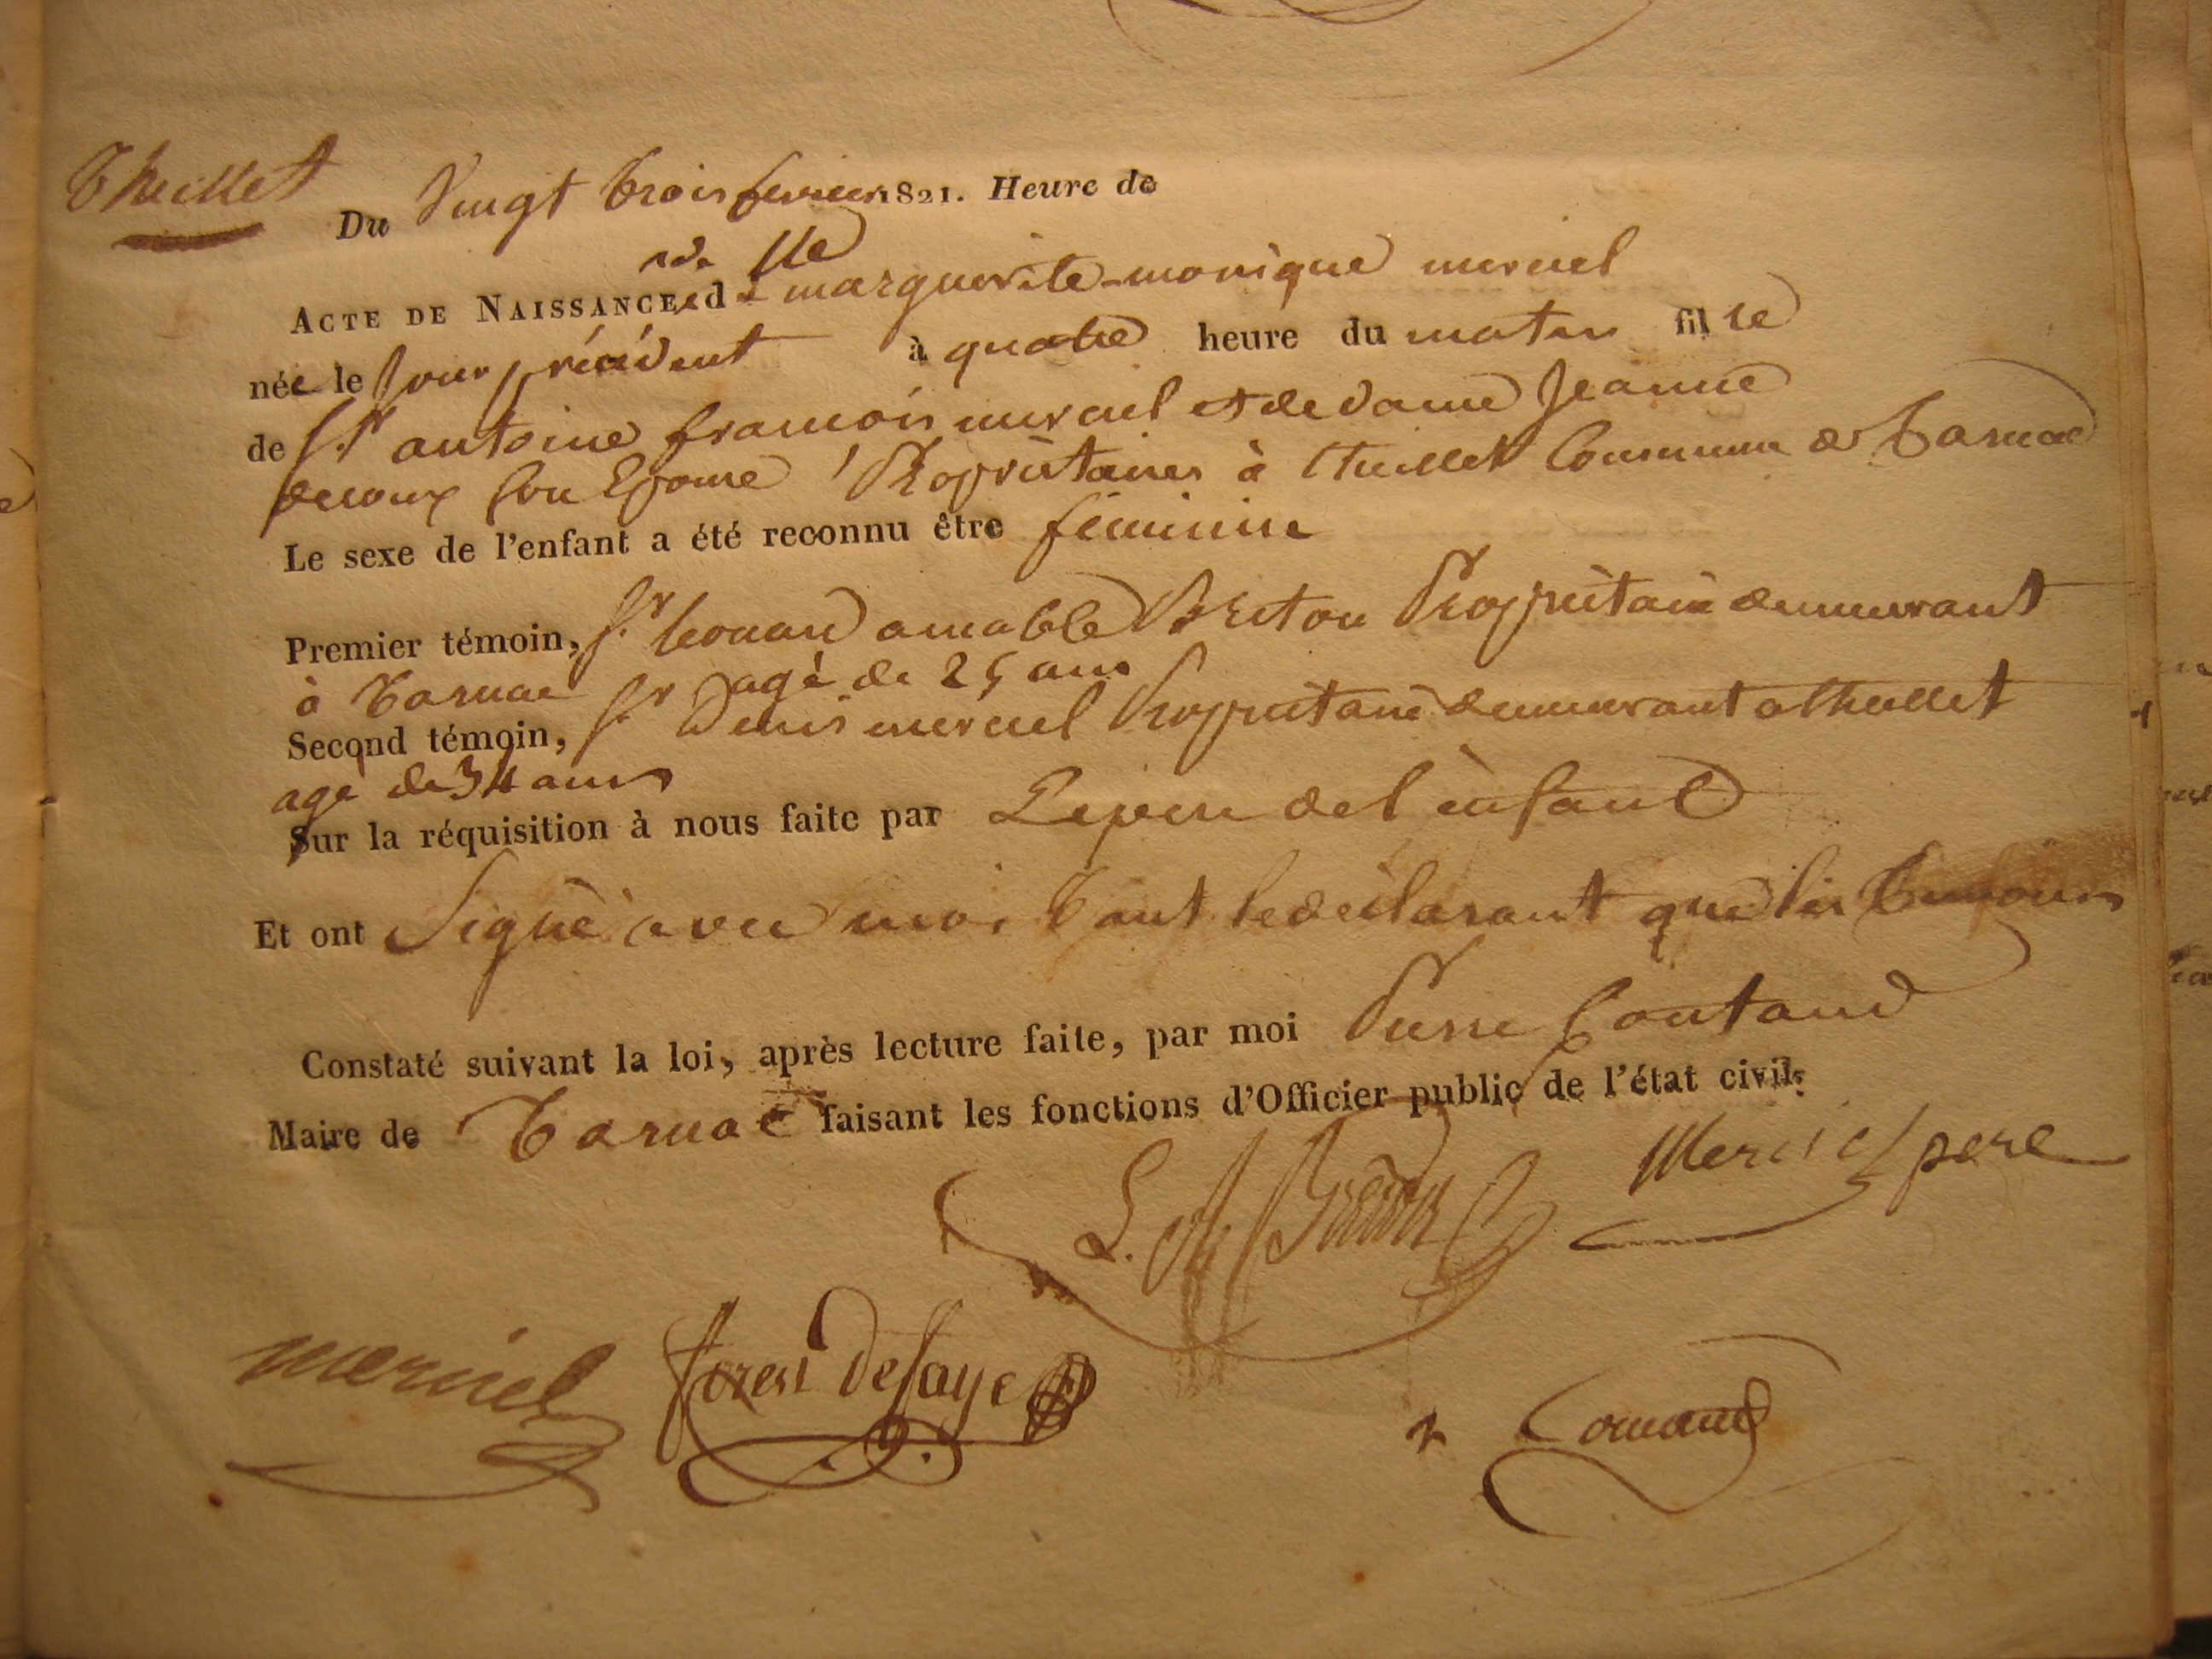 Theillet
Du Vingt trois fevrier 1821. Heure de
Acte de Naissance de Mlle marguerite-monique meruiel
née le jour précédent à quatre heure du matin fille
de Sr antoine francois et de dame Jeanne
decoux son Epouse Propriétaires à theillet Commune de Tarnac
Le sexe de l'enfant a été reconnu être féminin
Premier témoin, Sr leonard amable Breton Propriétaire demeurant
à Tarnac agé de 25 ans
Second témoin, Sr Denis Propriétaire demeurant a theillet
agé de 34 ans
Sur la réquisition à nous faite par Le pere de l'enfant
Et ont Signé avec moi tant le déclarant que les temoins
Constaté suivant la loi, après lecture faite, par moi Pierre
Maire de Tarnac faisant les fonctions d'Officier public de l'état civil.
L. A. Breton pere